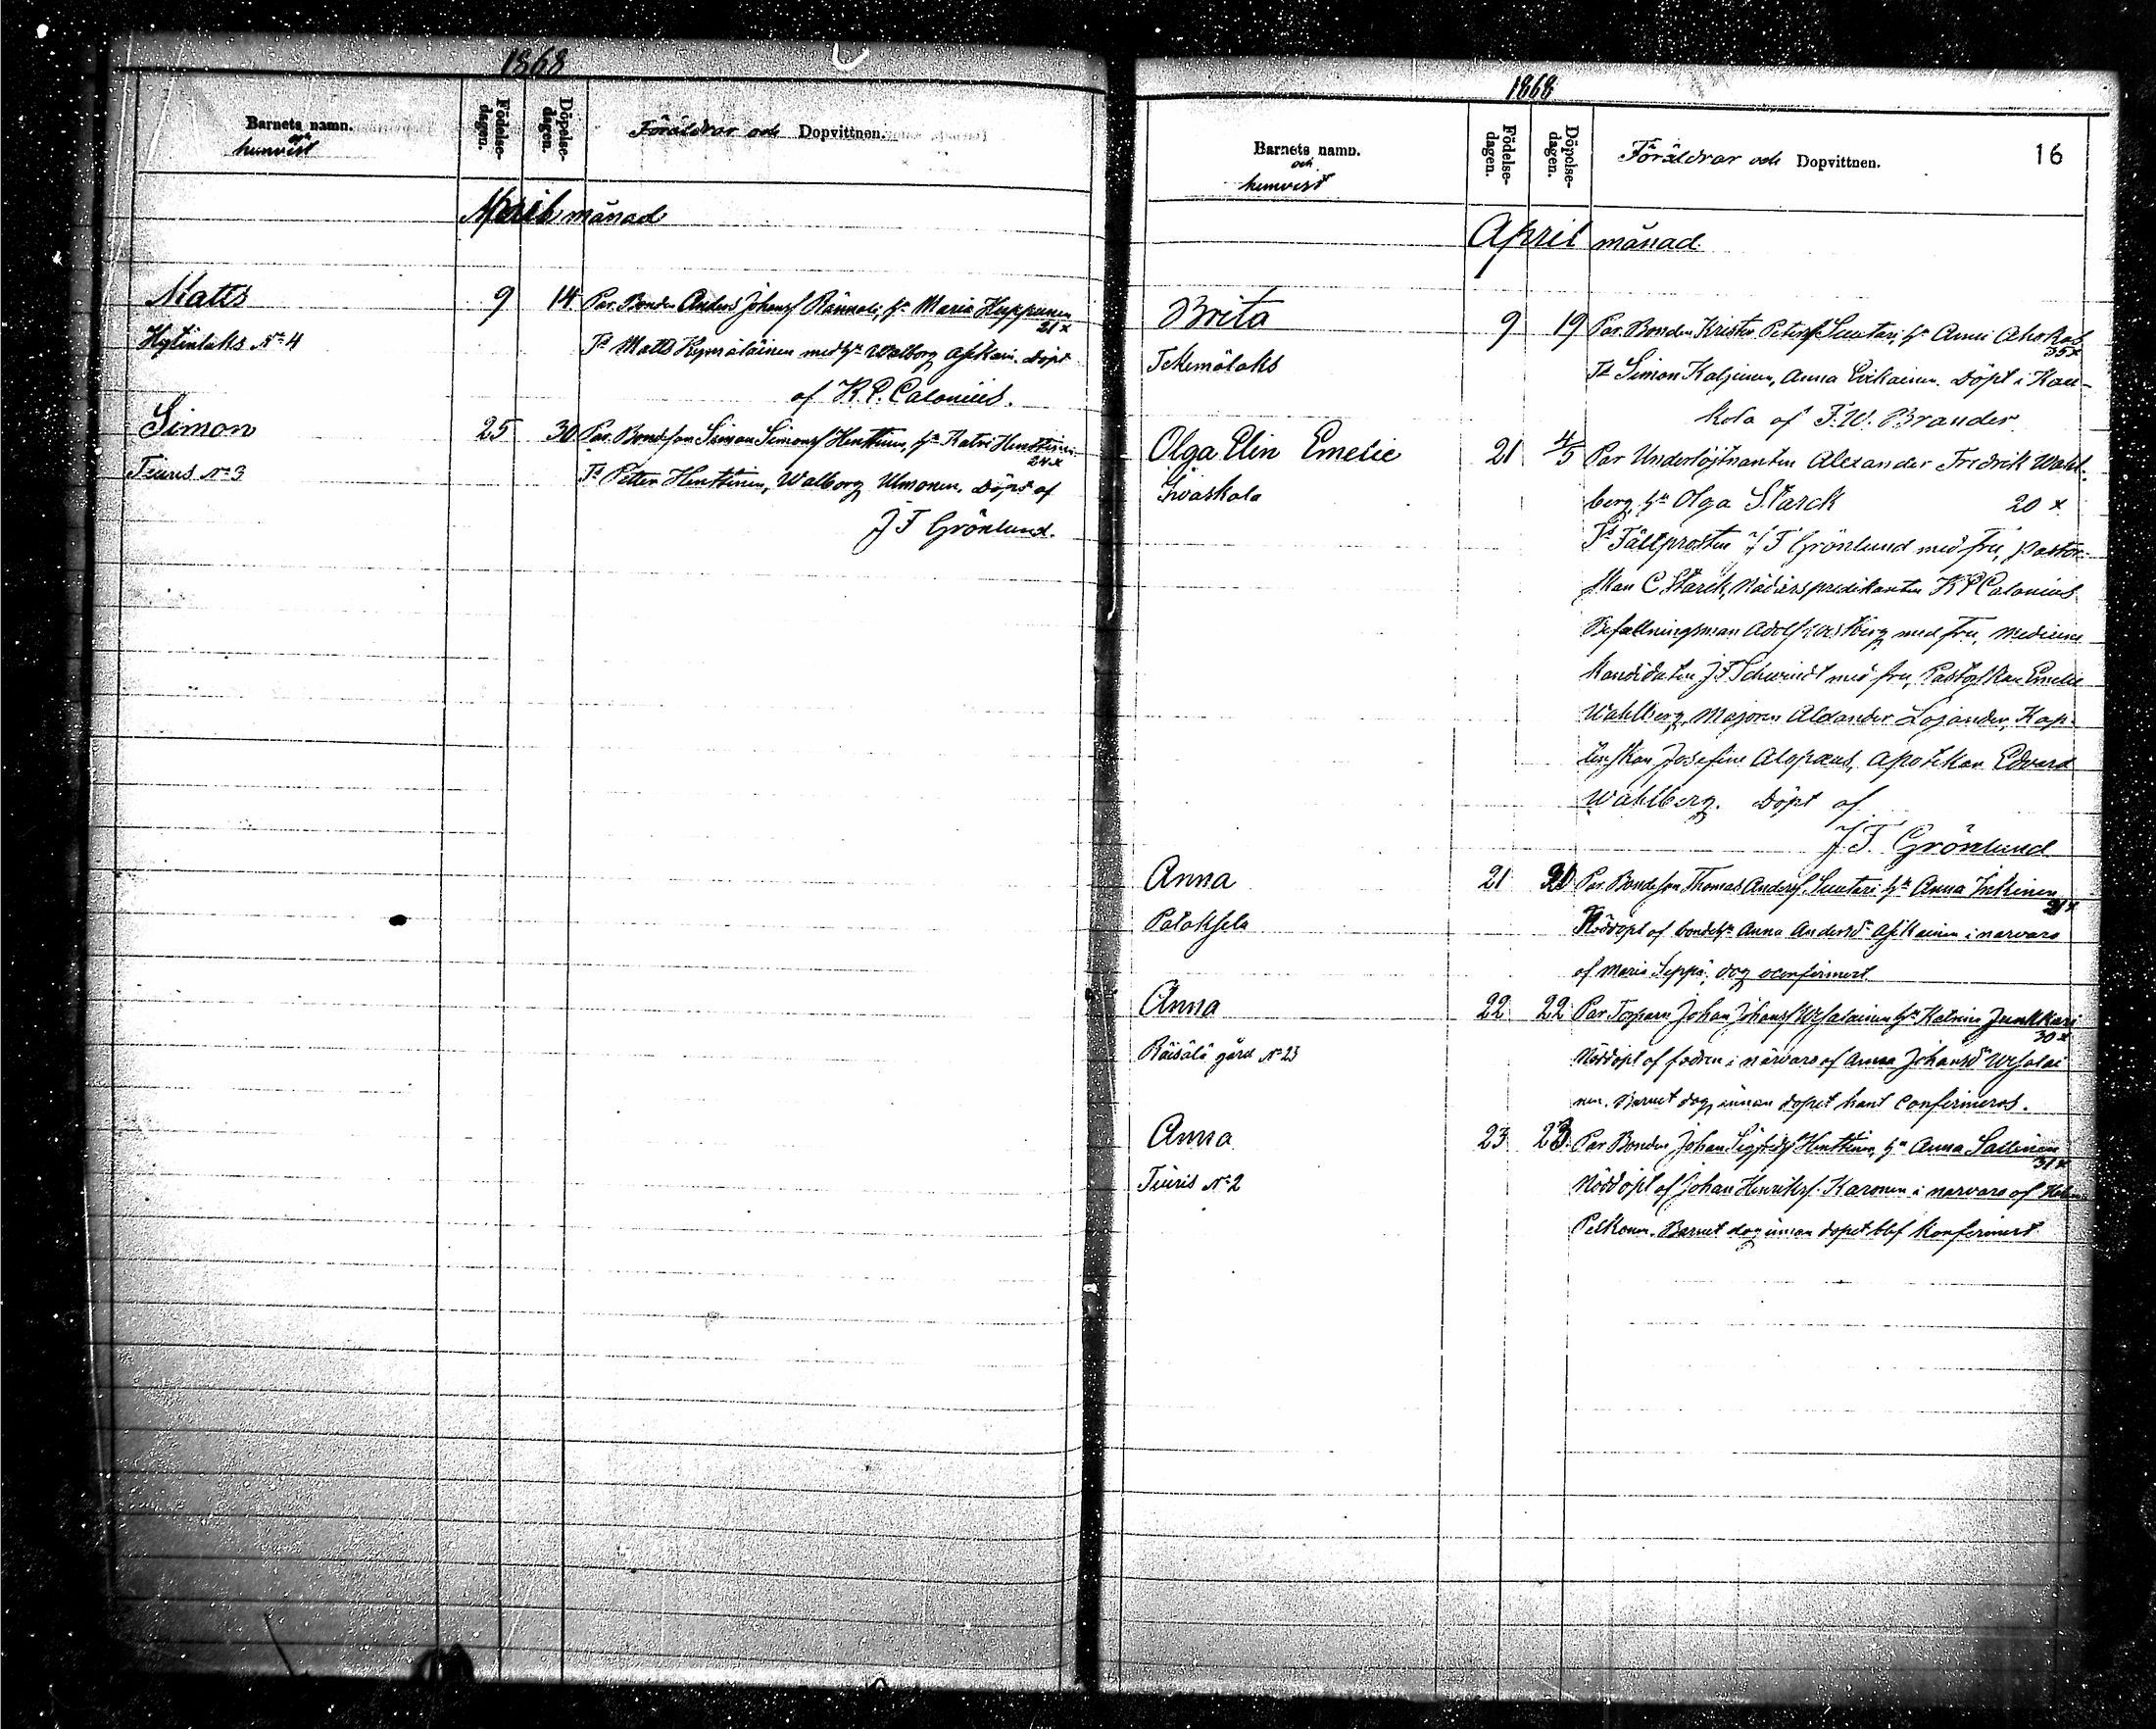 1868
Barnets namn.
och
hemvist
Födelse-
dagen.
Döpelse-
dagen.
Föräldrar och Dopvittnen.
April månad
Matts 9 14 Par. Bonden Anders Johansf Rännäli, hu Maria Huppunen
21 x
Hytinlaks No 4 Ts Matts Kymäläinen med hu Walborg Döpt
af K. P. Calonius.
Simon 25 30 Par. Bondeson Simon Simonsf Henttinen, hu Katri Henttinen
24 x
Tiuris No 3 Ts Petter Henttinen, Walborg Ulmonen. Döpt af
J F Grönlund.
1868
Barnets namn.
och
hemvist
Födelse-
dagen.
Döpelse-
dagen.
Föräldrar och Dopvittnen.
16
April månad.
Brita 9 19 Par. Bonden Krister Petersf Suutari, hu Anni
35 x
Särkemälaks Ts Simon Kaljunen, Anna Döpt i Kau-
kola af F. W. Brander
Olga Elin Emelie 21 4/5 Par Underlöjtnanten Alexander Fredrik Wahl-
Sivaskola berg, hu Olga Starck 20 x
Ts Fältprosten J F Grönlund med fru, Pastor-
skan C. Starck, Nådårspredikanten K P Calonius
Befallningsman Adolf med fru, Medicine
Kandidaten J F Schwindt med fru, Pastorskan Emelie
Wahlberg, Majoren Alexander Lojander, Kap-
tenskan Josefine Alopæus, Apotekare Edvard
Wahlberg. Döpt af
J. F. Grönlund
Anna 21 21 Par. Bondeson Thomas Andersf. Suutari hu Anna Inkinen
21 x
Nöddöpt af bondehu Anna Andersdr i närvaro
af Maria Seppä; dog oconfirmert.
Anna 22 22 Par Torparn Johan Johansf Wesalainen hu Katrina Junkkari
30 x
Räisälä gård No 23 Nöddöpt af fadren i närvaro af Anna Johansdr Wesalai
nen. Barnet dog innan dopet hant confirmeras.
Anna 23 23 Par Bonden Johan Sigfridsf Henttinen, hu Anna Sallinen
31 x
Tiuris No 2 Nöddöpt af Johan Henriksf. Karonen i närvaro af
Pelkonen. Barnet dog innan dopet blef Konfirmert